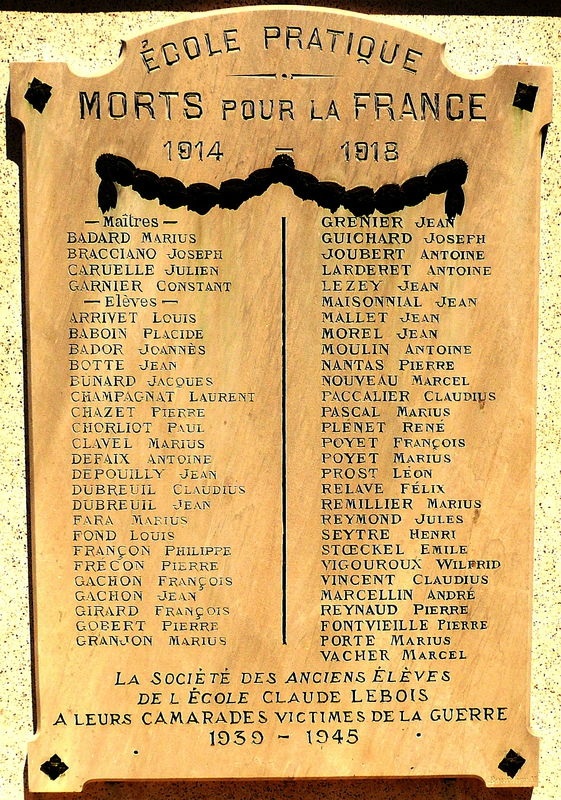 ÉCOLE PRATIQUE
MORTS POUR LA FRANCE
1914 – 1918
— Maîtres —
BADARD MARIUS
BRACCIANO JOSEPH
CARUELLE JULIEN
GARNIER CONSTANT
— Elèves —
ARRIVET LOUIS
BABOIN PLACIDE
BADOR JOANNÈS
BOTTE JEAN
BUNARD JACQUES
CHAMPAGNAT LAURENT
CHAZET PIERRE
CHORLIOT PAUL
CLAVEL MARIUS
DEFAIX ANTOINE
DEPOUILLY JEAN
DUBREUIL CLAUDIUS
DUBREUIL JEAN
FARA MARIUS
FOND LOUIS
FRANÇON PHILIPPE
FRECON PIERRE
GACHON FRANÇOIS
GACHON JEAN
GIRARD FRANÇOIS
GOBERT PIERRE
GRANJON MARIUS
GRENIER JEAN
GUICHARD JOSEPH
JOUBERT ANTOINE
LARDERET ANTOINE
LEZEY JEAN
MAISONNIAL JEAN
MALLET JEAN
MOREL JEAN
MOULIN ANTOINE
NANTAS PIERRE
NOUVEAU MARCEL
PACCALIER CLAUDIUS
PASCAL MARIUS
PLENET RENÉ
POYET FRANÇOIS
POYET MARIUS
PROST LÉON
RELAVE FÉLIX
REMILLIER MARIUS
REYMOND JULES
SEYTRE HENRI
STŒCKEL EMILE
VIGOUROUX WILFRID
VINCENT CLAUDIUS
MARCELLIN ANDRÉ
REYNAUD PIERRE
FONTVIEILLE PIERRE
PORTE MARIUS
VACHER MARCEL
LA SOCIÉTÉ DES ANCIENS ÉLÈVES
DE L ÉCOLE CLAUDE LEBOIS
A LEURS CAMARADES VICTIMES DE LA GUERRE
1939 – 1945